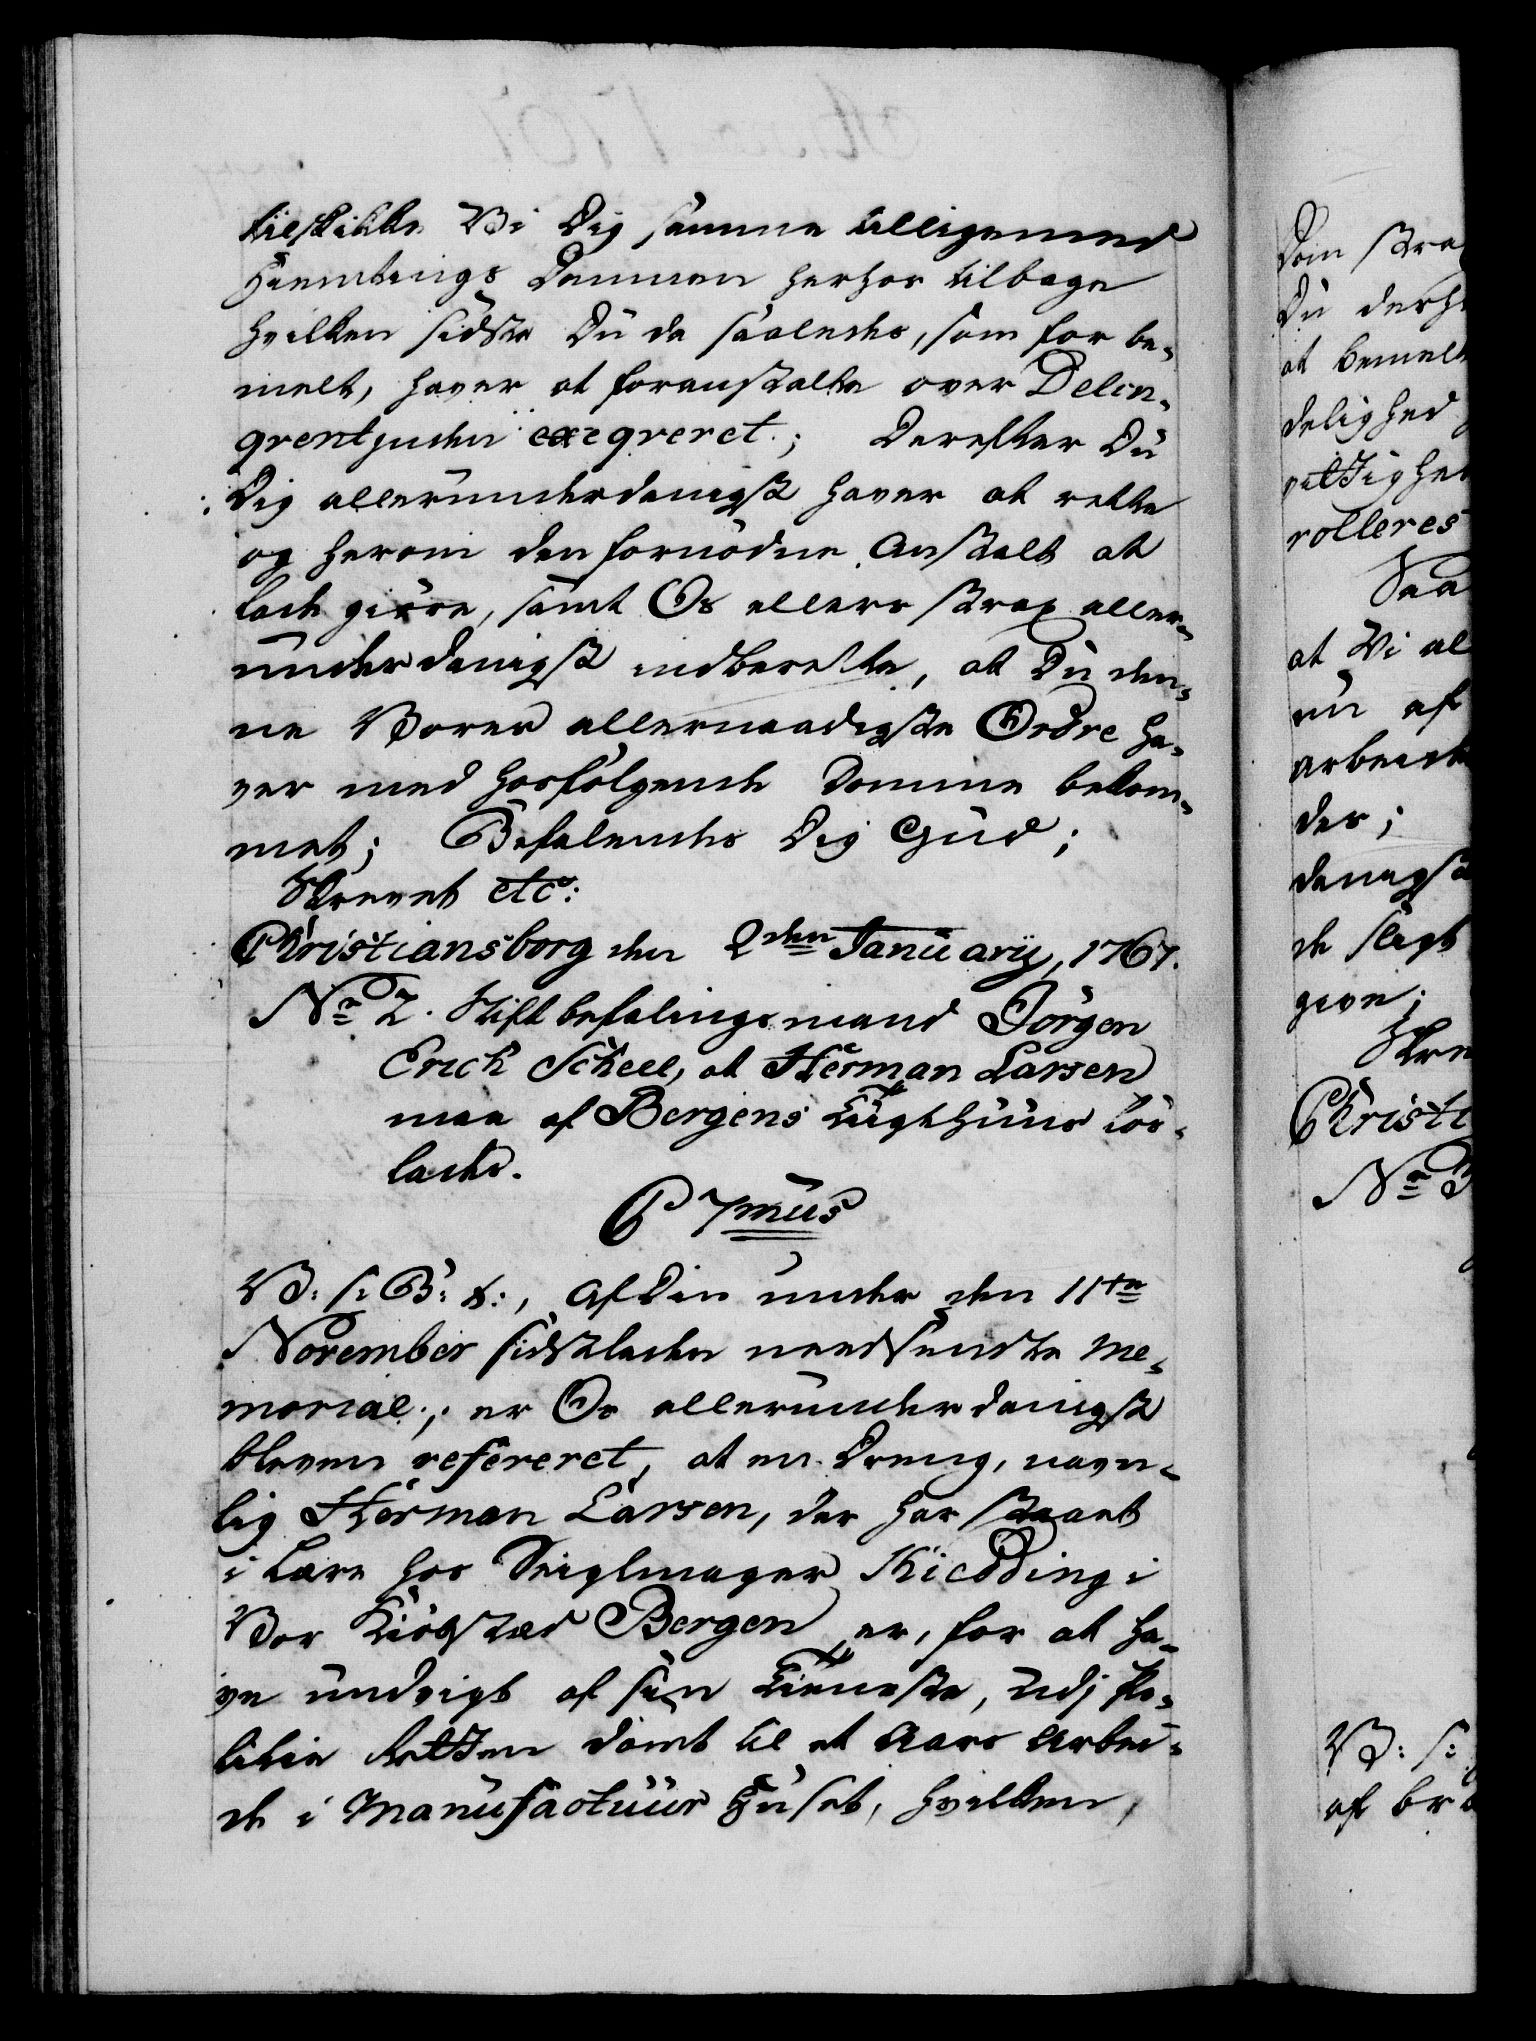 tilskikke Vi Dig samme tilligemed
Hiemtings Dommen herhos tilbage
hvilken sidste Du da saaledes, som for be-
melt, haver at foranstalte over Delin-
qventinden exeqveret; Derefter Du
Dig allerunderdanigst haver at rette
og herom den fornødne Anstalt at
lade giøre, samt Os ellers strax aller-
underdanigst indberette, at Du den-
ne Vores allernaadigste Ordre ha-
ver med hosfølgende Domme bekom-
met; Befalendes Dig Gud;
Skrevet etc:
Christiansborg den 2den Januarij, 1767.
No 2. Stiftbefalingsmand Jørgen
Erich Scheel, at Herman Larsen
maa af Bergens Tugthuus løs-
lades.
C 7mus
V: s: G: t:, Af Din under den 11te
November sidstleden needsendte Me-
morial, er Os allerunderdanigst
bleven refereret, at en Dreng, navn-
lig Herman Larsen, der har staaet
i Lære hos Seiglmager Kiedding i
Vor Kiøbstæd Bergen er, for at ha-
ve undvigt af sin Tieneste, udj Po-
litie Retten dømt til et Aars Arbei-
de i Manufactuur Huset, hvilken
Dom stra
Du derh
at bemelt
delighed
rigtighe
rolleres
Saa
at Vi al
nu af
arbeide
der;
danigst
de sligt
give;
Skre
Christi
No 3
V: s:
af br